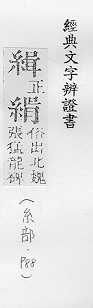 經典文字辨證書
緝正
緝俗出北魏
張猛龍碑
(糸部·P88)